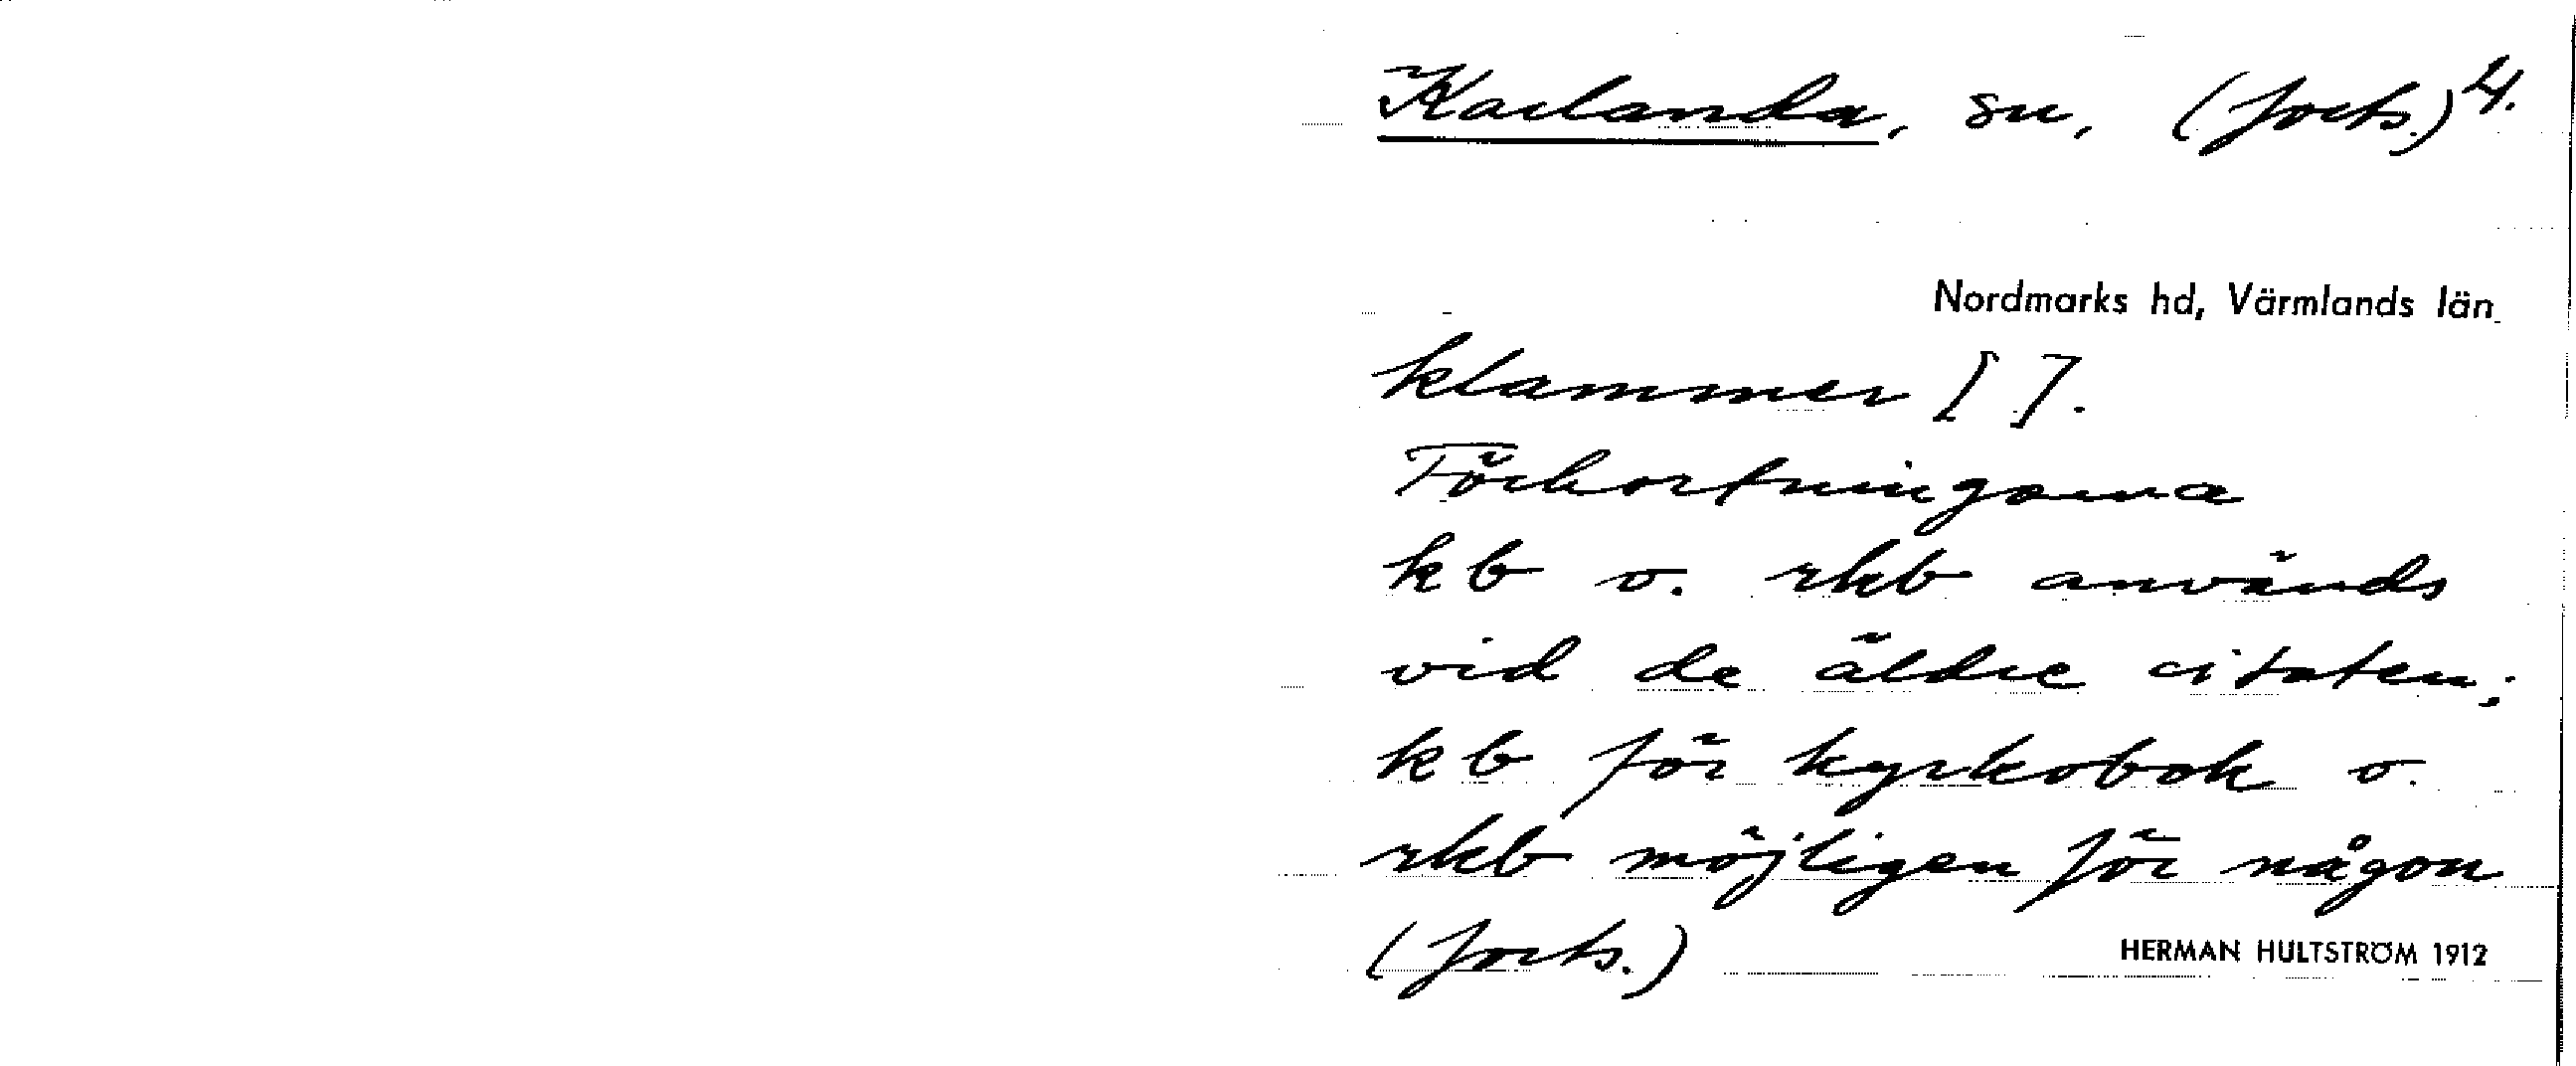 Karlanda, sn, (forts.) 4.
Nordmarks hd, Värmlands län
klammer [ ].
Förkortningarna
kb o. rkb används
vid de äldre citaten;
kb för kyrkobok o.
rkb möjligen för någon
(forts.)
HERMAN HULTSTRÖM 1912